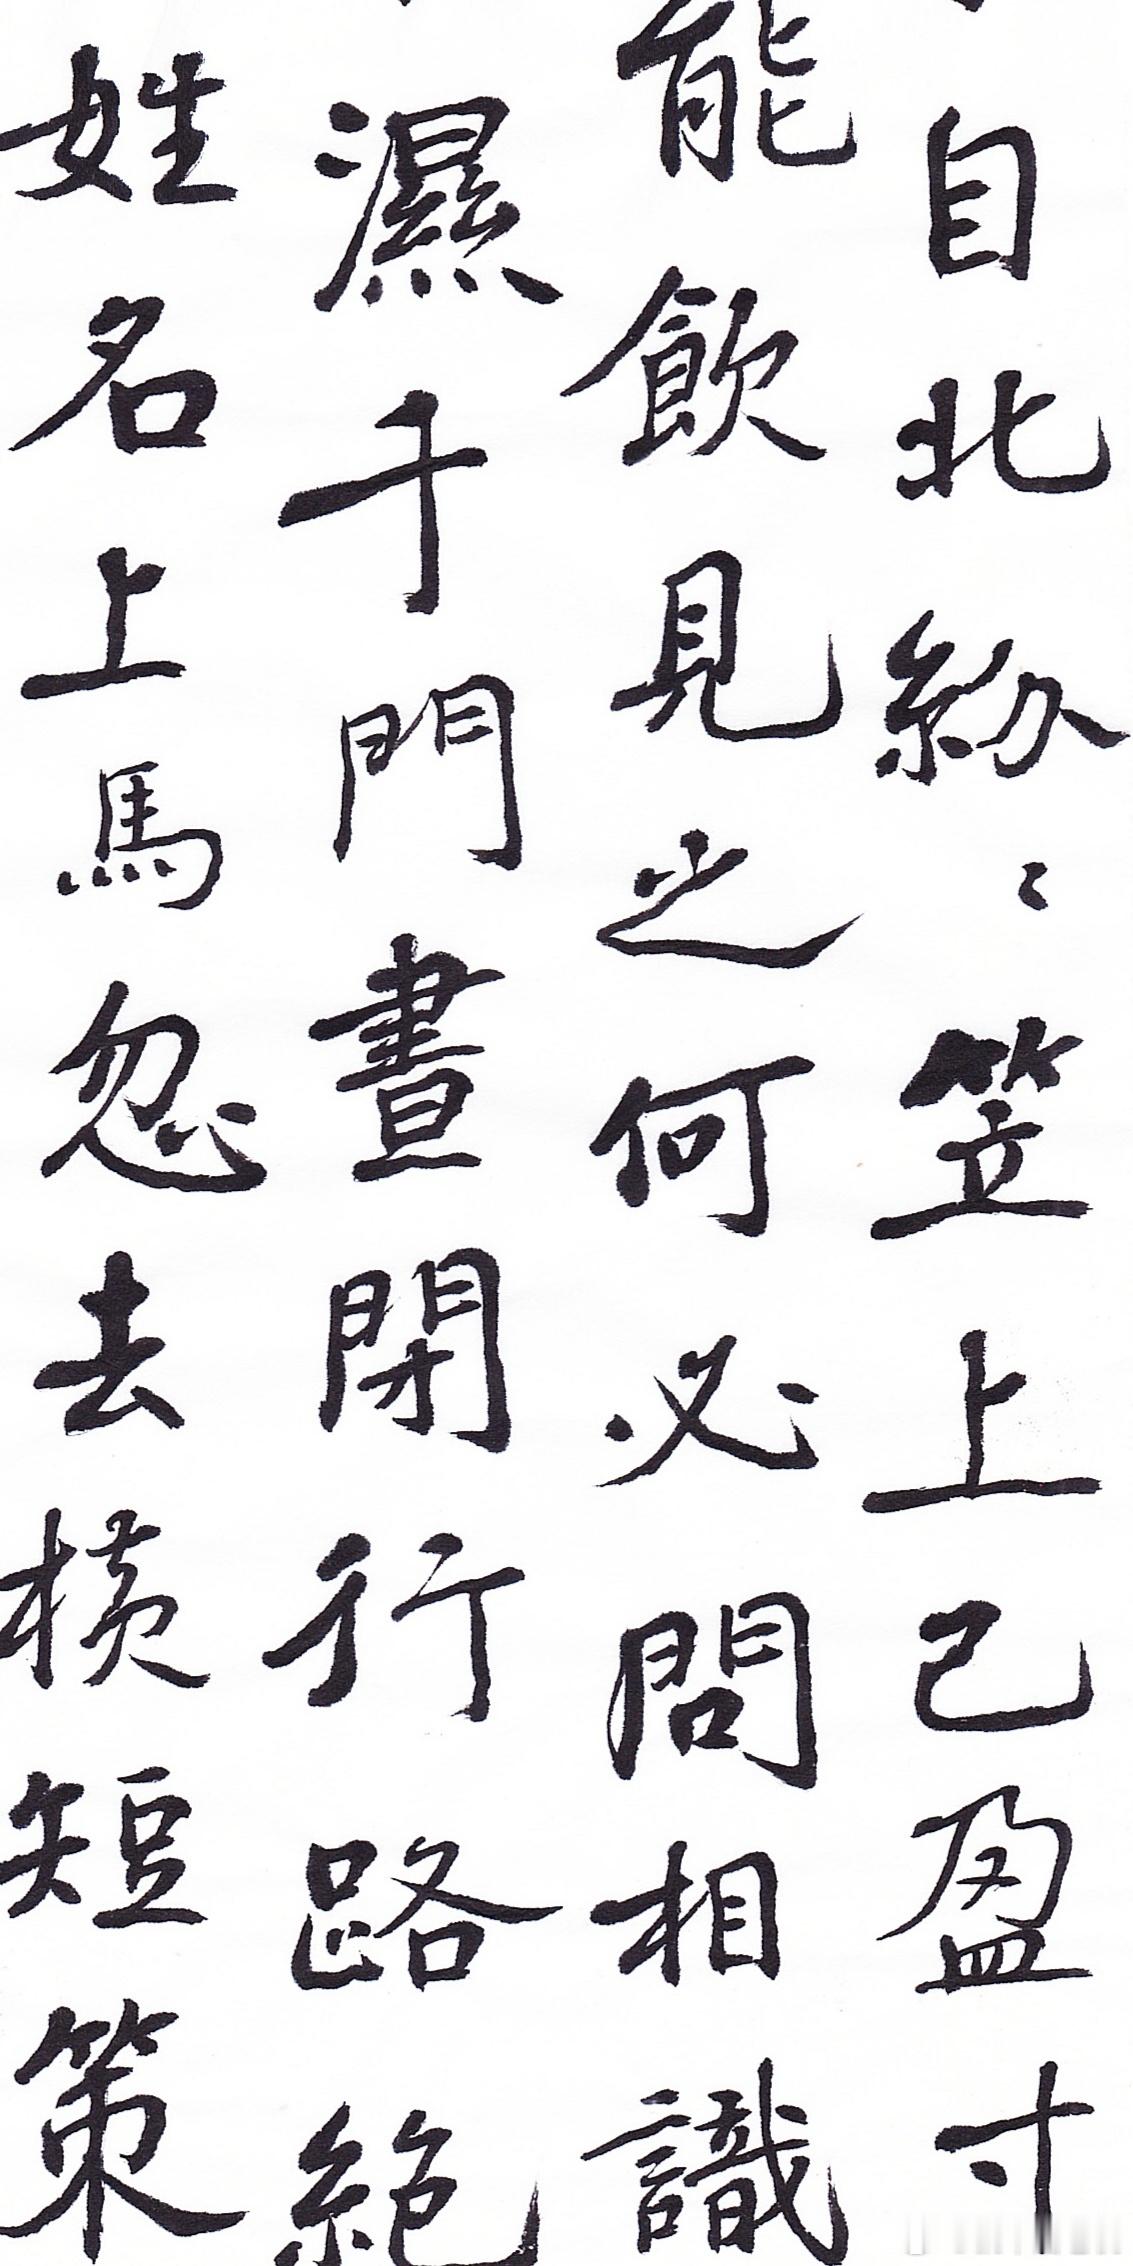 自北紛〻笠上已盈寸
能飲見之何必問相識
濕干門晝閉行路絕
姓名上馬忽去橫短策